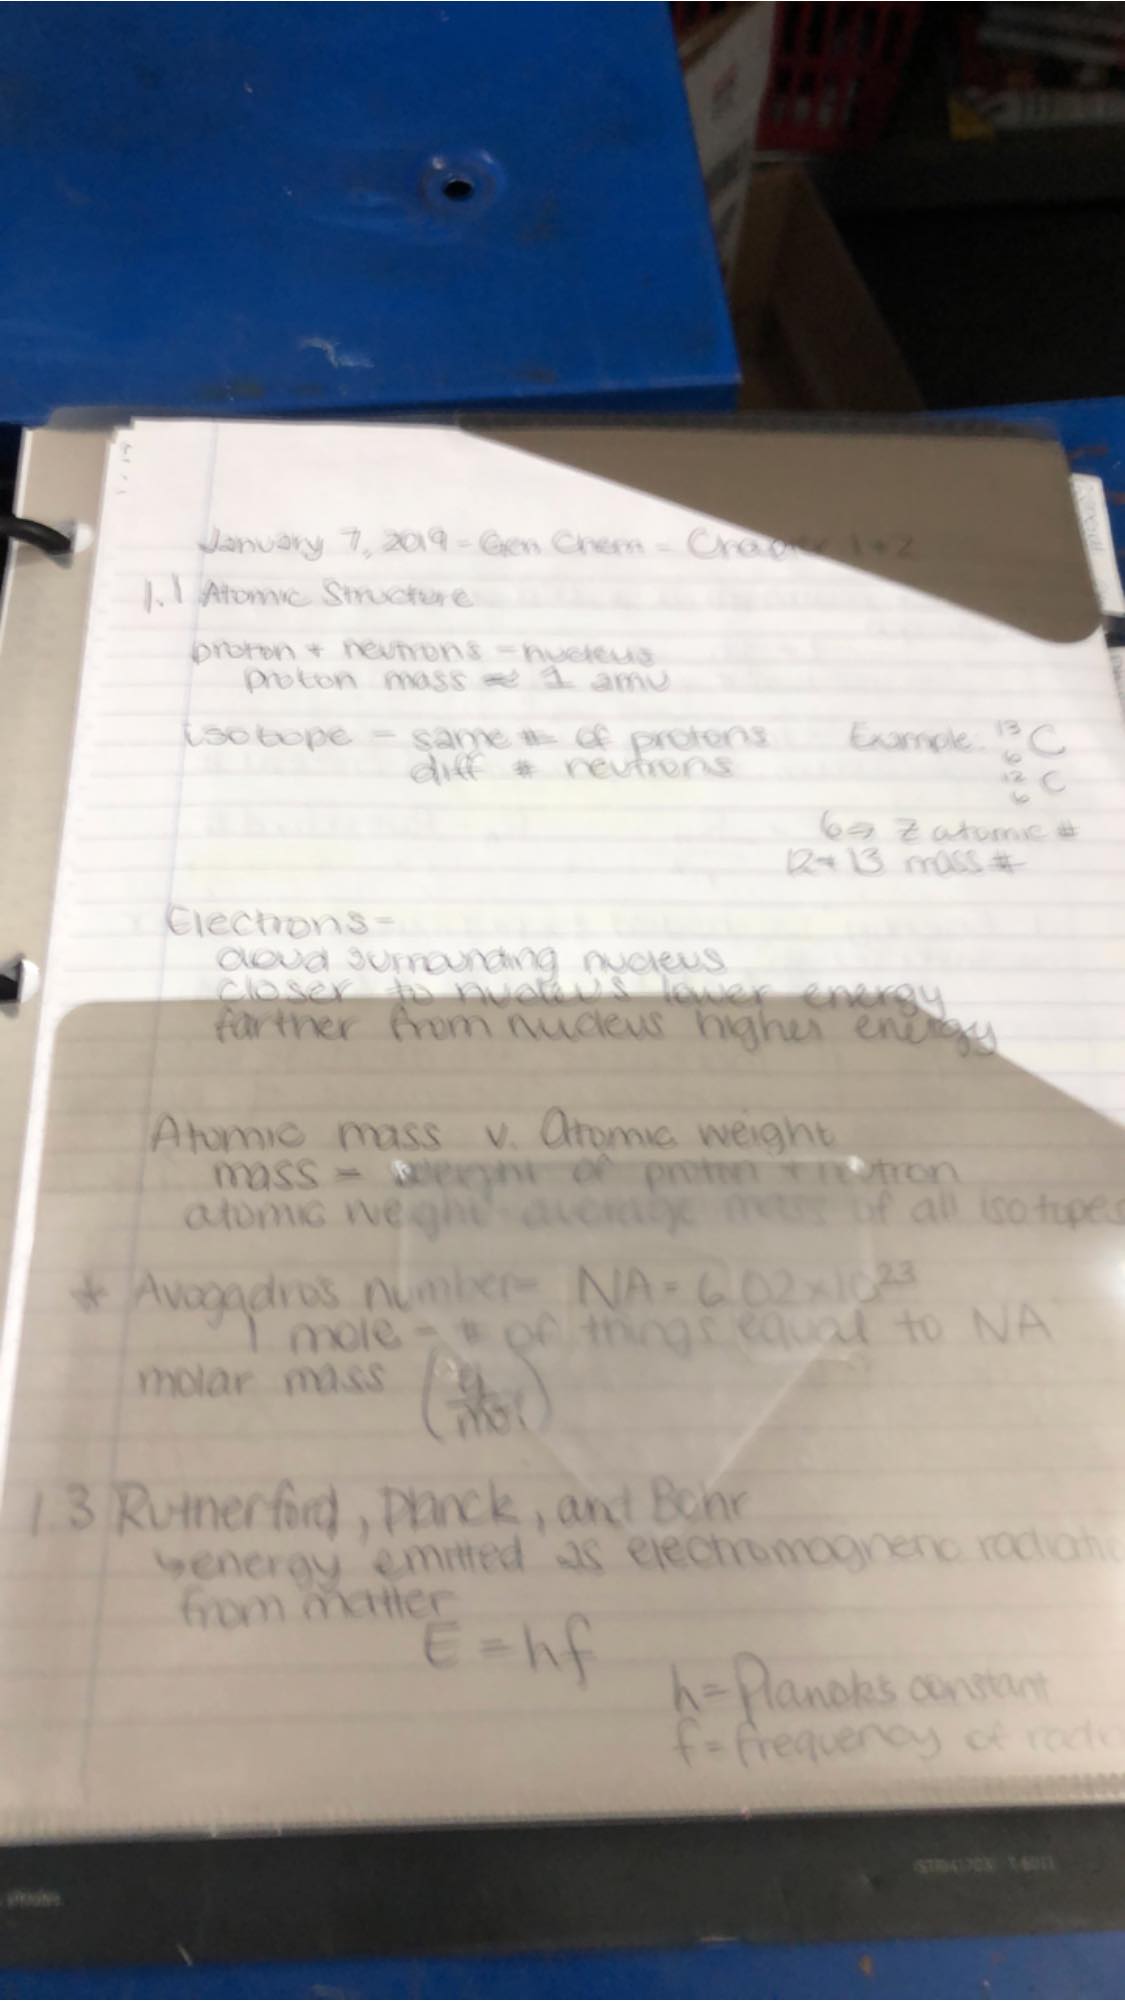 January 7, 2019 - Gen Chem - Chapter 1+2
1.1 Atomic Structure
proton + neutrons = nucleus
proton mass ≈ 1 amu
isotope - same # of protons Example: ¹³₆C
diff # neutrons ¹²₆C
6 => Z atomic #
12 + 13 mass #
Electrons =
cloud surrounding nucleus
closer to nucleus lower energy
farther from nucleus higher energy
Atomic mass v. Atomic weight
mass = weight of proton + neutron
atomic weight - average mass of all isotopes
* Avogadro's number = NA = 6.02x10²³
1 mole = # of things equal to NA
molar mass (g/mol)
1.3 Rutherford, Planck, and Bohr
↳ energy emitted as electromagnetic radiatio
from matter
E = hf
h = Planck's constant
f = frequency of radi